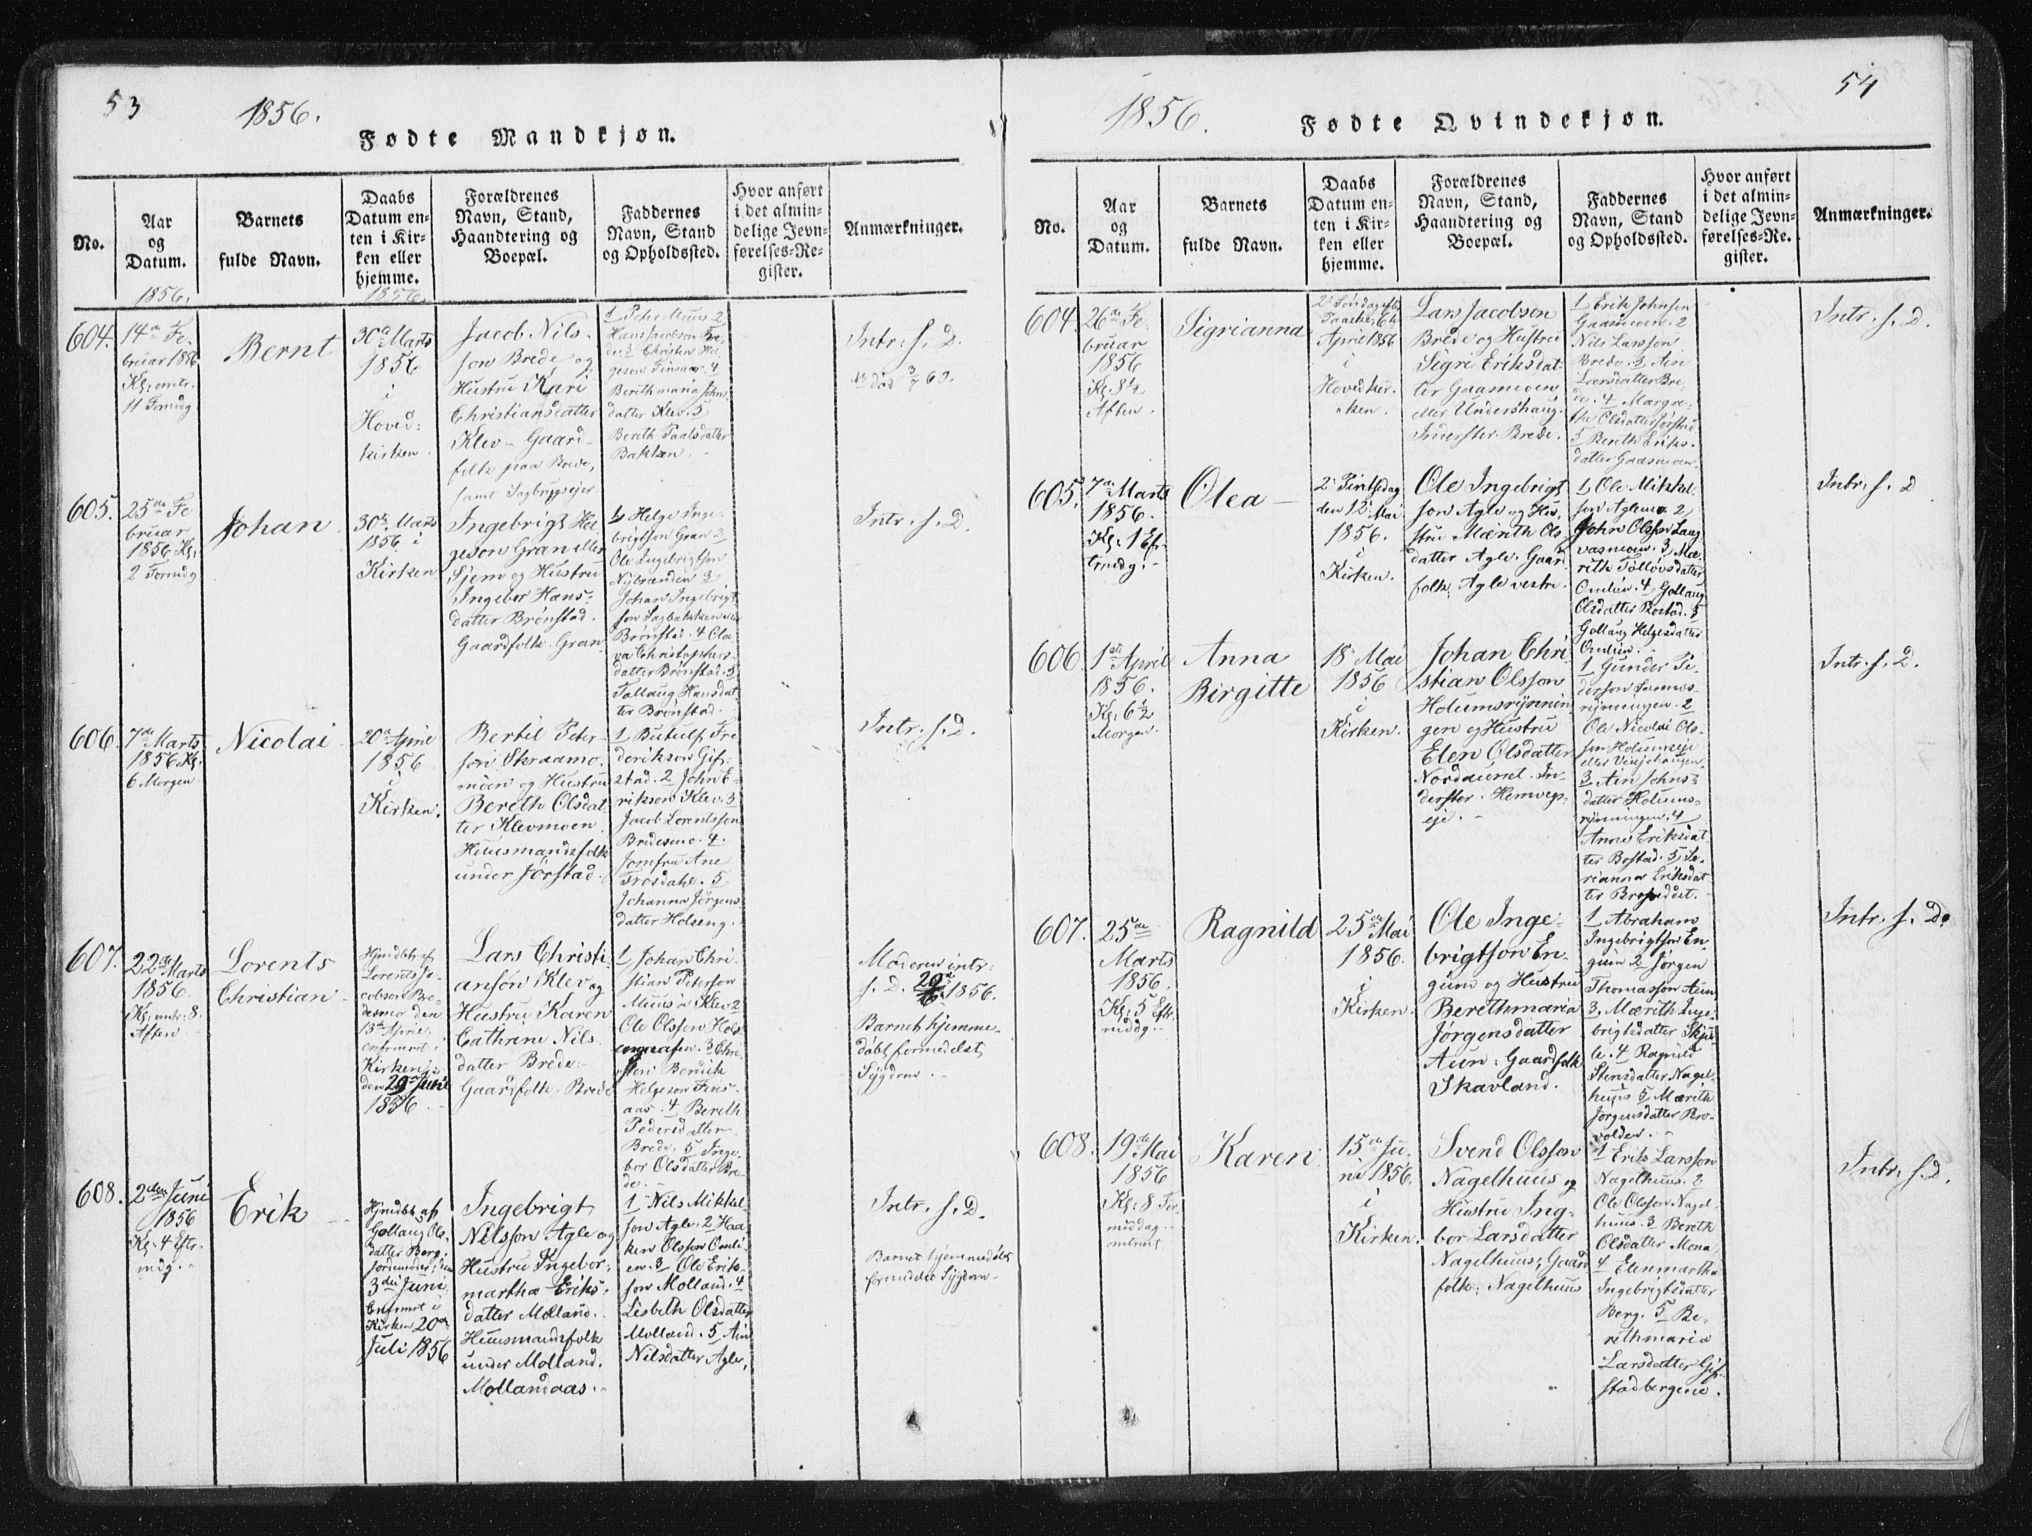 53
1856.
Fødte Mandkjøn.
No.
Aar
og
Datum.
Barnets
fulde Navn.
Daabs
Datum en-
ten i Kir-
ken eller
hjemme.
Forældrenes
Navn, Stand,
Haandtering og
Boepæl.
Faddernes
Navn, Stand
og Opholdssted.
Hvor anført
i det almin-
delige Jevn-
førelses-Re-
gister.
Anmærkninger.
1856.
1856.
604.
14de Fe-
bruar 1856
Kl: omtr.
11 Formdg
Bernt
30te Marts
1856
i
Hoved-
kirken.
Jacob Nils-
son Brede og
Hustru Kari
Christiansdatter
Klev - Gaard-
folk paa Brede,
samt Sagbrugsejer
1 Peter Muus 2
Hans Jacobson Bre-
de. 3 Christen Hel-
geson Finsaas. 4
Berith maria Johns-
datter Klev. 5
Berith Paalsdatter
Bakken.
Intr. s. D.
605.
25de Fe-
bruar
1856 Kl:
2 Formdg
Johan
30te Marts
1856 i
Kirken
Ingebrigt Hel-
geson Gran eller
Sjem og Hustru
Ingebor Hans-
datter Brønstad.
Gaardfolk. Gran
1 Helge Inge-
brigtson Gran 2
Ole Ingebrigtson
Nybranden 3
Johan Ingebrigt-
son Sagbakken eller
Brønstad. 4 Ola-
va Christophers-
datter Brønstad. 5
Tollaug Hansdat-
ter Brønstad.
Intr. s. D.
606.
7de Marts
1856 Kl:
6 Morgen
Nicolai
20de April
1856
i
Kirken.
Bertil Peter-
son Skraamo-
moen og Hustru
Bereth Olsdat-
ter Klevmoen.
Huusmandsfolk
under Jørstad.
1 Botulf Fre-
derikson Gif-
stad. 2 John E-
rikson Klev. 3
Jacob Lorentsson
Bredesmo. 4.
Jomfru Ane
Frosdahl. 5
Johanna Jørgens-
datter Holseng.
Intr. s. D.
607.
22de Marts
1856.
Kl: omtr: 8.
Aften
Lorents
Christian
Hjmdbt af
Lorents Ja-
cobson Bre-
desmo den
13de April
confirmeret i
Kirken i
den 29de Juni
1856.
Lars Christi-
anson Klev og
Hustru Karen
Cathrine Nils-
datter Brede
Gaardfolk. Brede
1 Johan Chri-
stian Peterson
Muus Klev 2
Ole Olsson Hols-
3 Chri-
Benrik
Helgeson Fins-
aas. 4 Bereth
Pedersdatter
Brede. 5 Inge-
bor Olsdatter Bre-
de.
Moderen intr:
s. D. 29/6 1856.
Barnet hjemme-
døbt formedelst
Sygdom.
608.
2den Juni
1856
Kl: 4 Eftr-
mdg.
Erik
Hjmdbt af
Gollaug Ols-
datter Berg,
Jordemoder; den
3die Juni
Confirmrt i
Kirken 20de
Juli 1856
Ingebrigt
Nilsson Agle og
Hustru Ingebor-
martha Eriks-
datter Molland.
Huusmandsfolk
under Molland.
Mollandaas.
1 Nils Mikkel-
son Agle. 2 Haa-
ken Olsson Omli-
en. 3 Ole Erik-
son Molland. 4
Lisbeth Olsdatter
Molland. 5 Ane
Nilsdatter Agle.
Intr. s. D.
Barnet hjemmedøbt
formedelst Sygdom.
54
1856.
Fødte Qvindekjøn.
No.
Aar
og
Datum.
Barnets
fulde Navn.
Daabs
Datum en-
ten i Kir-
ken eller
hjemme.
Forældrenes
Navn, Stand,
Haandtering og
Boepæl.
Faddernes
Navn, Stand
og Opholdssted.
Hvor anført
i det almin-
delige Jevn-
førelses-Re-
gister.
Anmærkninger.
604.
26de Fe-
bruar
1856
Kl: 8½
Aften.
Sigrianna
2' Søndag eftr
Paaske, 6te
April 1856
i
Hovedkir-
ken.
Lars Jacobson
Brede og Hustru
Sigri Eriksdat-
ter Gaasmoen
eller Undershaug.
Inderster. Brede.
1 Erik Johnsen
Gaasmoen. 2
Nils Larsson
Brede. 3 Ane
Larsdatter Bre-
de. 4 Margre-
the Olsdatter Jørstad
5 Bereth Eriks-
datter Gaasmoen.
Intr. s. D.
605.
7de Marts
1856.
Kl: 1 Ef-
trmdg.
Olea
2' Pintsedag
den 12' Mai
1856.
i
Kirken.
Ole Ingebrigt-
son Agle og Hu-
stru Mærith Ols-
datter Agle. Gaard-
folk. Agle vestre.
1 Ole Mikkel-
son Aglemo. 2
John Olsson Lang-
vasmoen. 3 Mæ-
rith Tølløvsdatter
Omlien. 4 Gollaug
Olsdatter Rostad. 5
Gollaug Helgesdatter
Omlien.
Intr. s. D
606.
1ste April
1856.
Kl: 6½
Morgen.
Anna
Birgitte
18' Mai
1856
i
Kirken.
Johan Chri-
stian Olsson
Holumsrynnin-
gen og Hustru
Elen Olsdatter
Nordaunet. In-
derster. Hemveps-
eje.
1 Gunder Pe-
derson Sannes-
rynningen. 2
Ole Nicolai Ols-
son Holumseje
eller
3 Ane Johns-
datter Holums-
rynningen. 4
Anne Eriksdat-
ter Bostad. 5 Se-
rianna Eriksdat-
ter
Intr. s. D.
607.
25de
Marts
1856.
Kl: 5 Eft-
mdg.
Ragnild
25de Mai
1856.
i
Kirken.
Ole Inge-
brigtson En-
gum og Hustru
Berethmaria
Jørgensdatter
Aun: Gaardfolk
Skavland.
1 Abraham
Ingebrigtson En-
gum 2 Jørgen
Thomasson Aun
3, Mærith Inge-
brigtsdatter Skju-
le. 4 Ragnild
Stensdatter Nagel-
huus 5 Mærith
Jørgensdatter Bro-
volden.
Intr. s. D.
608.
19de Mai
1856
Kl: 8 For-
middag
omtrent
Karen
15de Ju-
ni 1856.
i
Kirken.
Svend Olsson
Nagelhuus og
Hustru Ing-
bor Larsdatter
Nagelhuus; Gaard-
folk; Nagelhuus
1 Erik Larsson
Nagelhuus. 2
Ole Olsson Nagel-
huus. 3 Bereth
Olsdatter Mona
4 Elenmartha
Ingebrigtsdatter
Berg. 5 Be-
rethmaria
Larsdatter Gif-
stadbergene.
Intr. s. D.